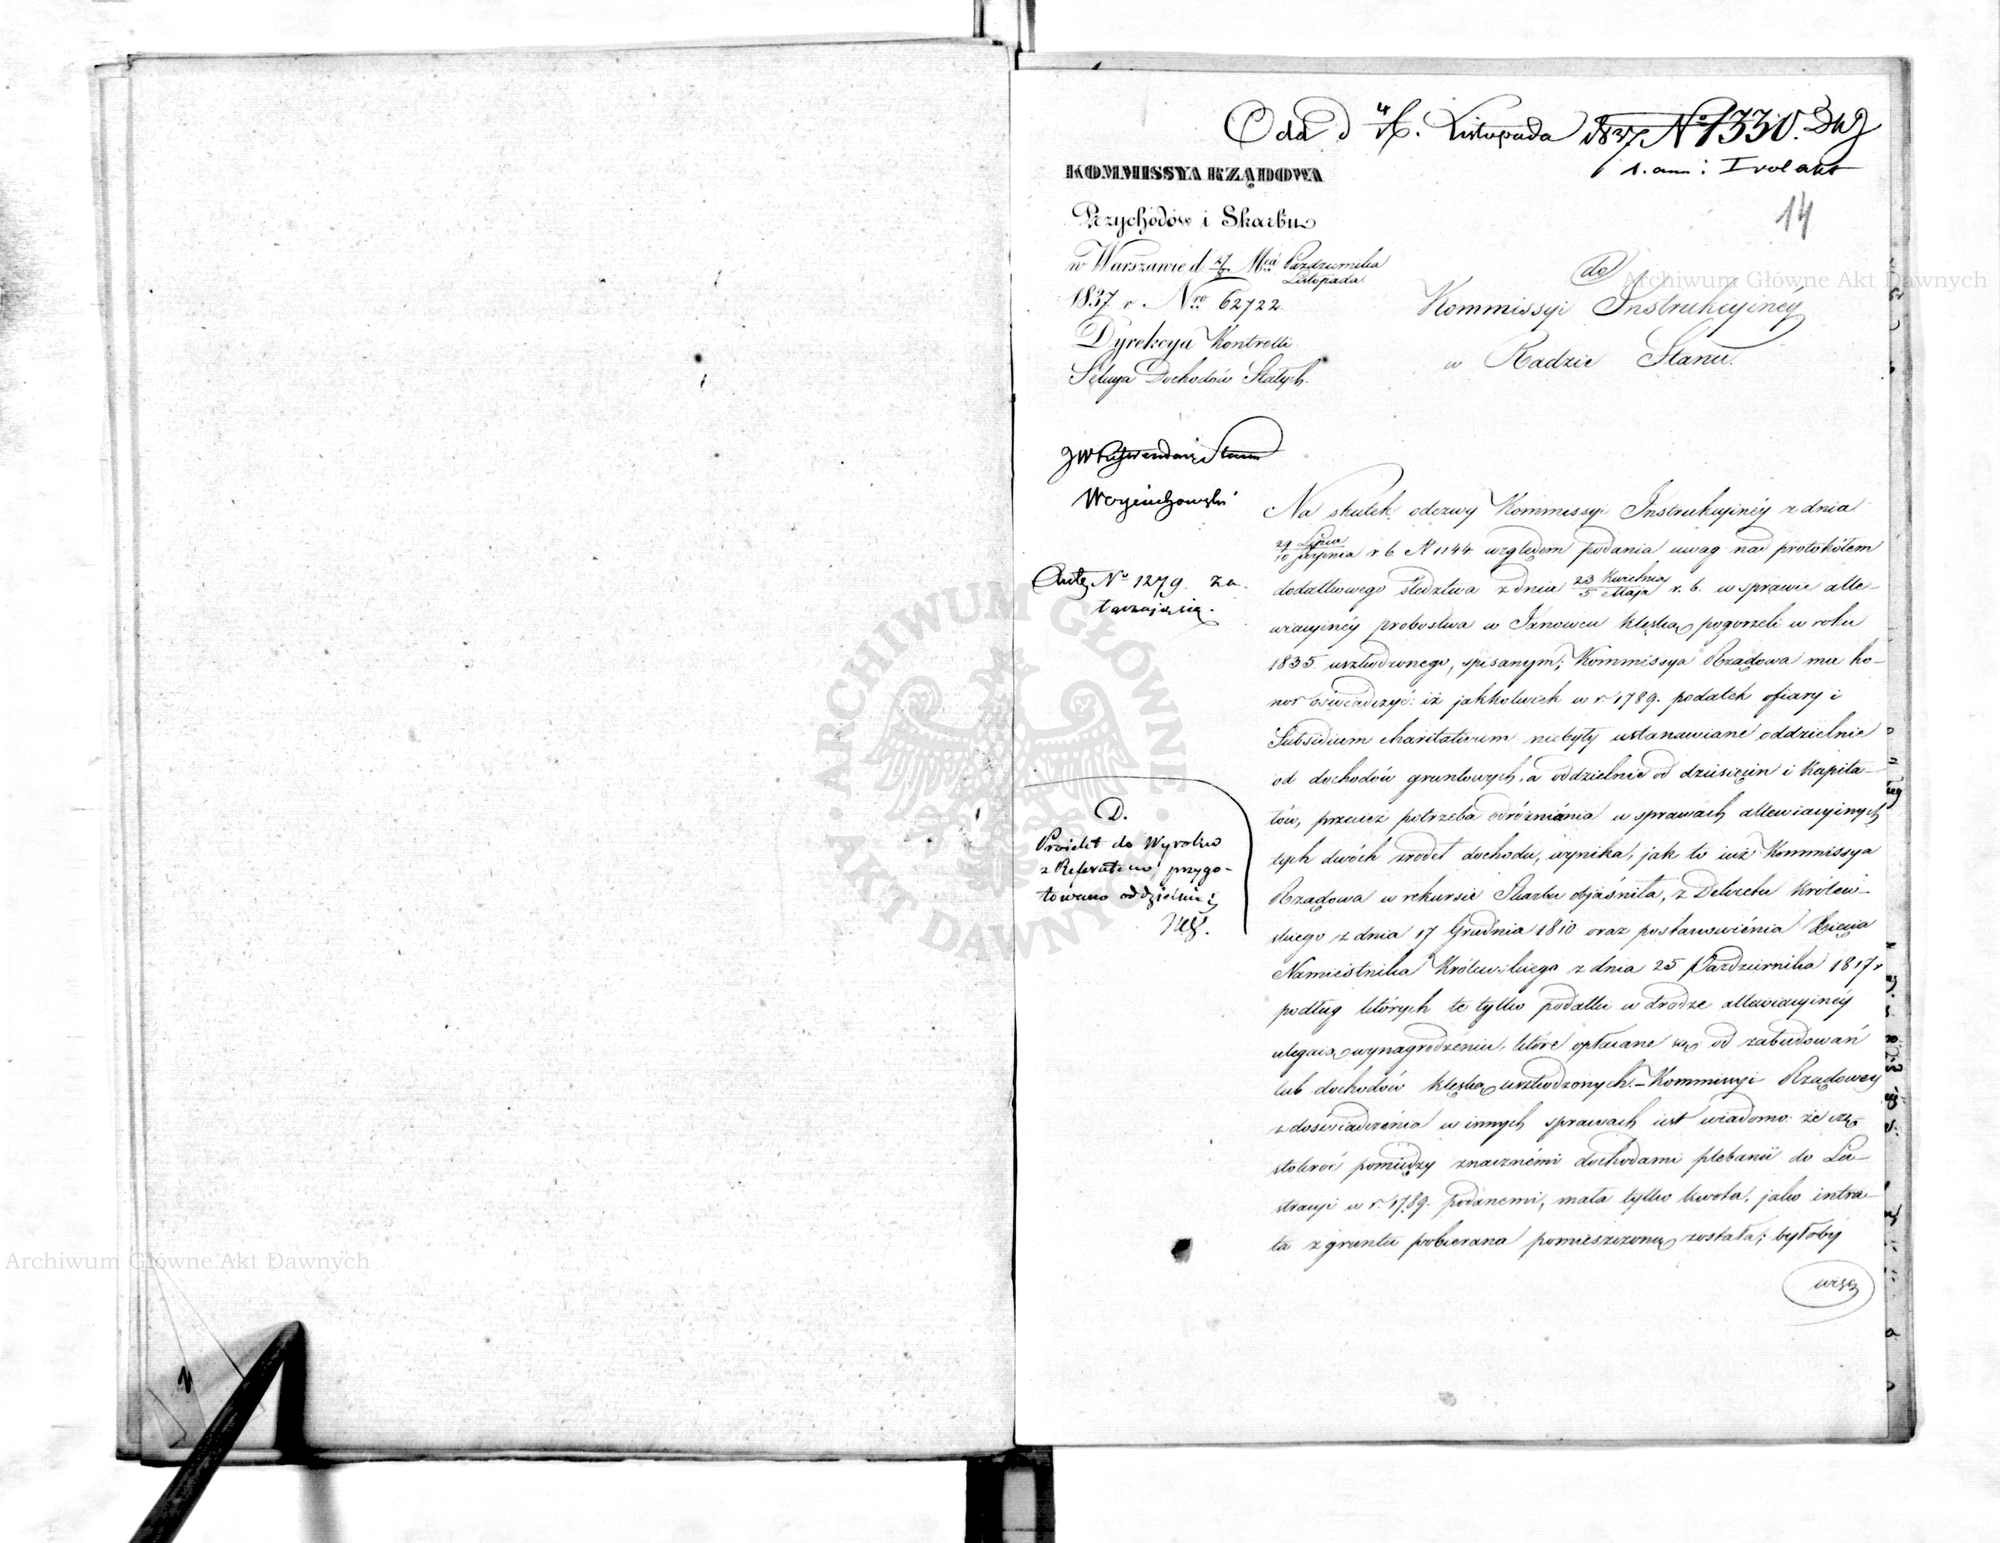 Odd d 4/16. Listopada 1837 N° 1330.
1. ann: I vol akt
14
KOMMISSYA RZĄDOWA
Przychodów i Skarbu
w Warszawie d 27/8 Mca Października
Listopada
1837 r Nro 62722
Dyrekcya Kontrolli
Sekcya Dochodów Stałych.
do
Kommissyi Instrukcyjnéy
w Radzie Stanu.
JW Referendarz Stanu
Woyciechowski
Akta N° 1279. za-
łączają się.
D.
Projekt do Wyroku
z Referatem przygo-
towano oddzielnie
Na skutek odezwy Kommissyi Instrukcyinéy z dnia
29 Lipca
10 Sierpnia r b N 1144 względem podania uwag nad protokółem
dodatkowego śledztwa z dnia 23 Kwietnia
5 Maja r. b. w sprawie alle-
wiacyinéy probostwa w Janowcu klęską pogorzeli w roku
1835 uszkodzonego, spisanym; Kommissya Rządowa ma ho-
nor oświadczyć: iż jakkolwiek w r. 1789. podatek ofiary i
Subsidium charitativum niebyły ustanawiane oddzielnie
od dochodów gruntowych, a oddzielnie od dziesięcin i kapita-
łów, przecież potrzeba odróżniania w sprawach allewiacyinych
tych dwóch źrodeł dochodu, wynika, jak to iuż Kommissya
Rządowa w rekursie Skarbu objaśniła, z Dekretu Królew-
skiego z dnia 17 Grudnia 1810 oraz postanowiénia Xięcia
Namiestnika Królewskiego z dnia 25 Październiká 1817 r
podług których te tylko podatki w drodze allewiacyinéy
ulegaią wynagrodzeniu, które opłacane są od zabudowań
lub dochodów klęską uszkodzonych. - Kommissyi Rządowéy
z doświadczénia w innych sprawach iest wiadomo że czę-
stokroć pomiędzy znacznémi dochodami plebanii do Lu-
stracyi w r. 1789. podanemi, mała tylko kwota, jako intra-
ta z gruntu pobierana pomieszczoną została; byłoby
więc
Archiwum Główne Akt Dawnych
Archiwum Główne Akt Dawnych
ARCHIWUM GŁÓWNE AKT DAWNYCH